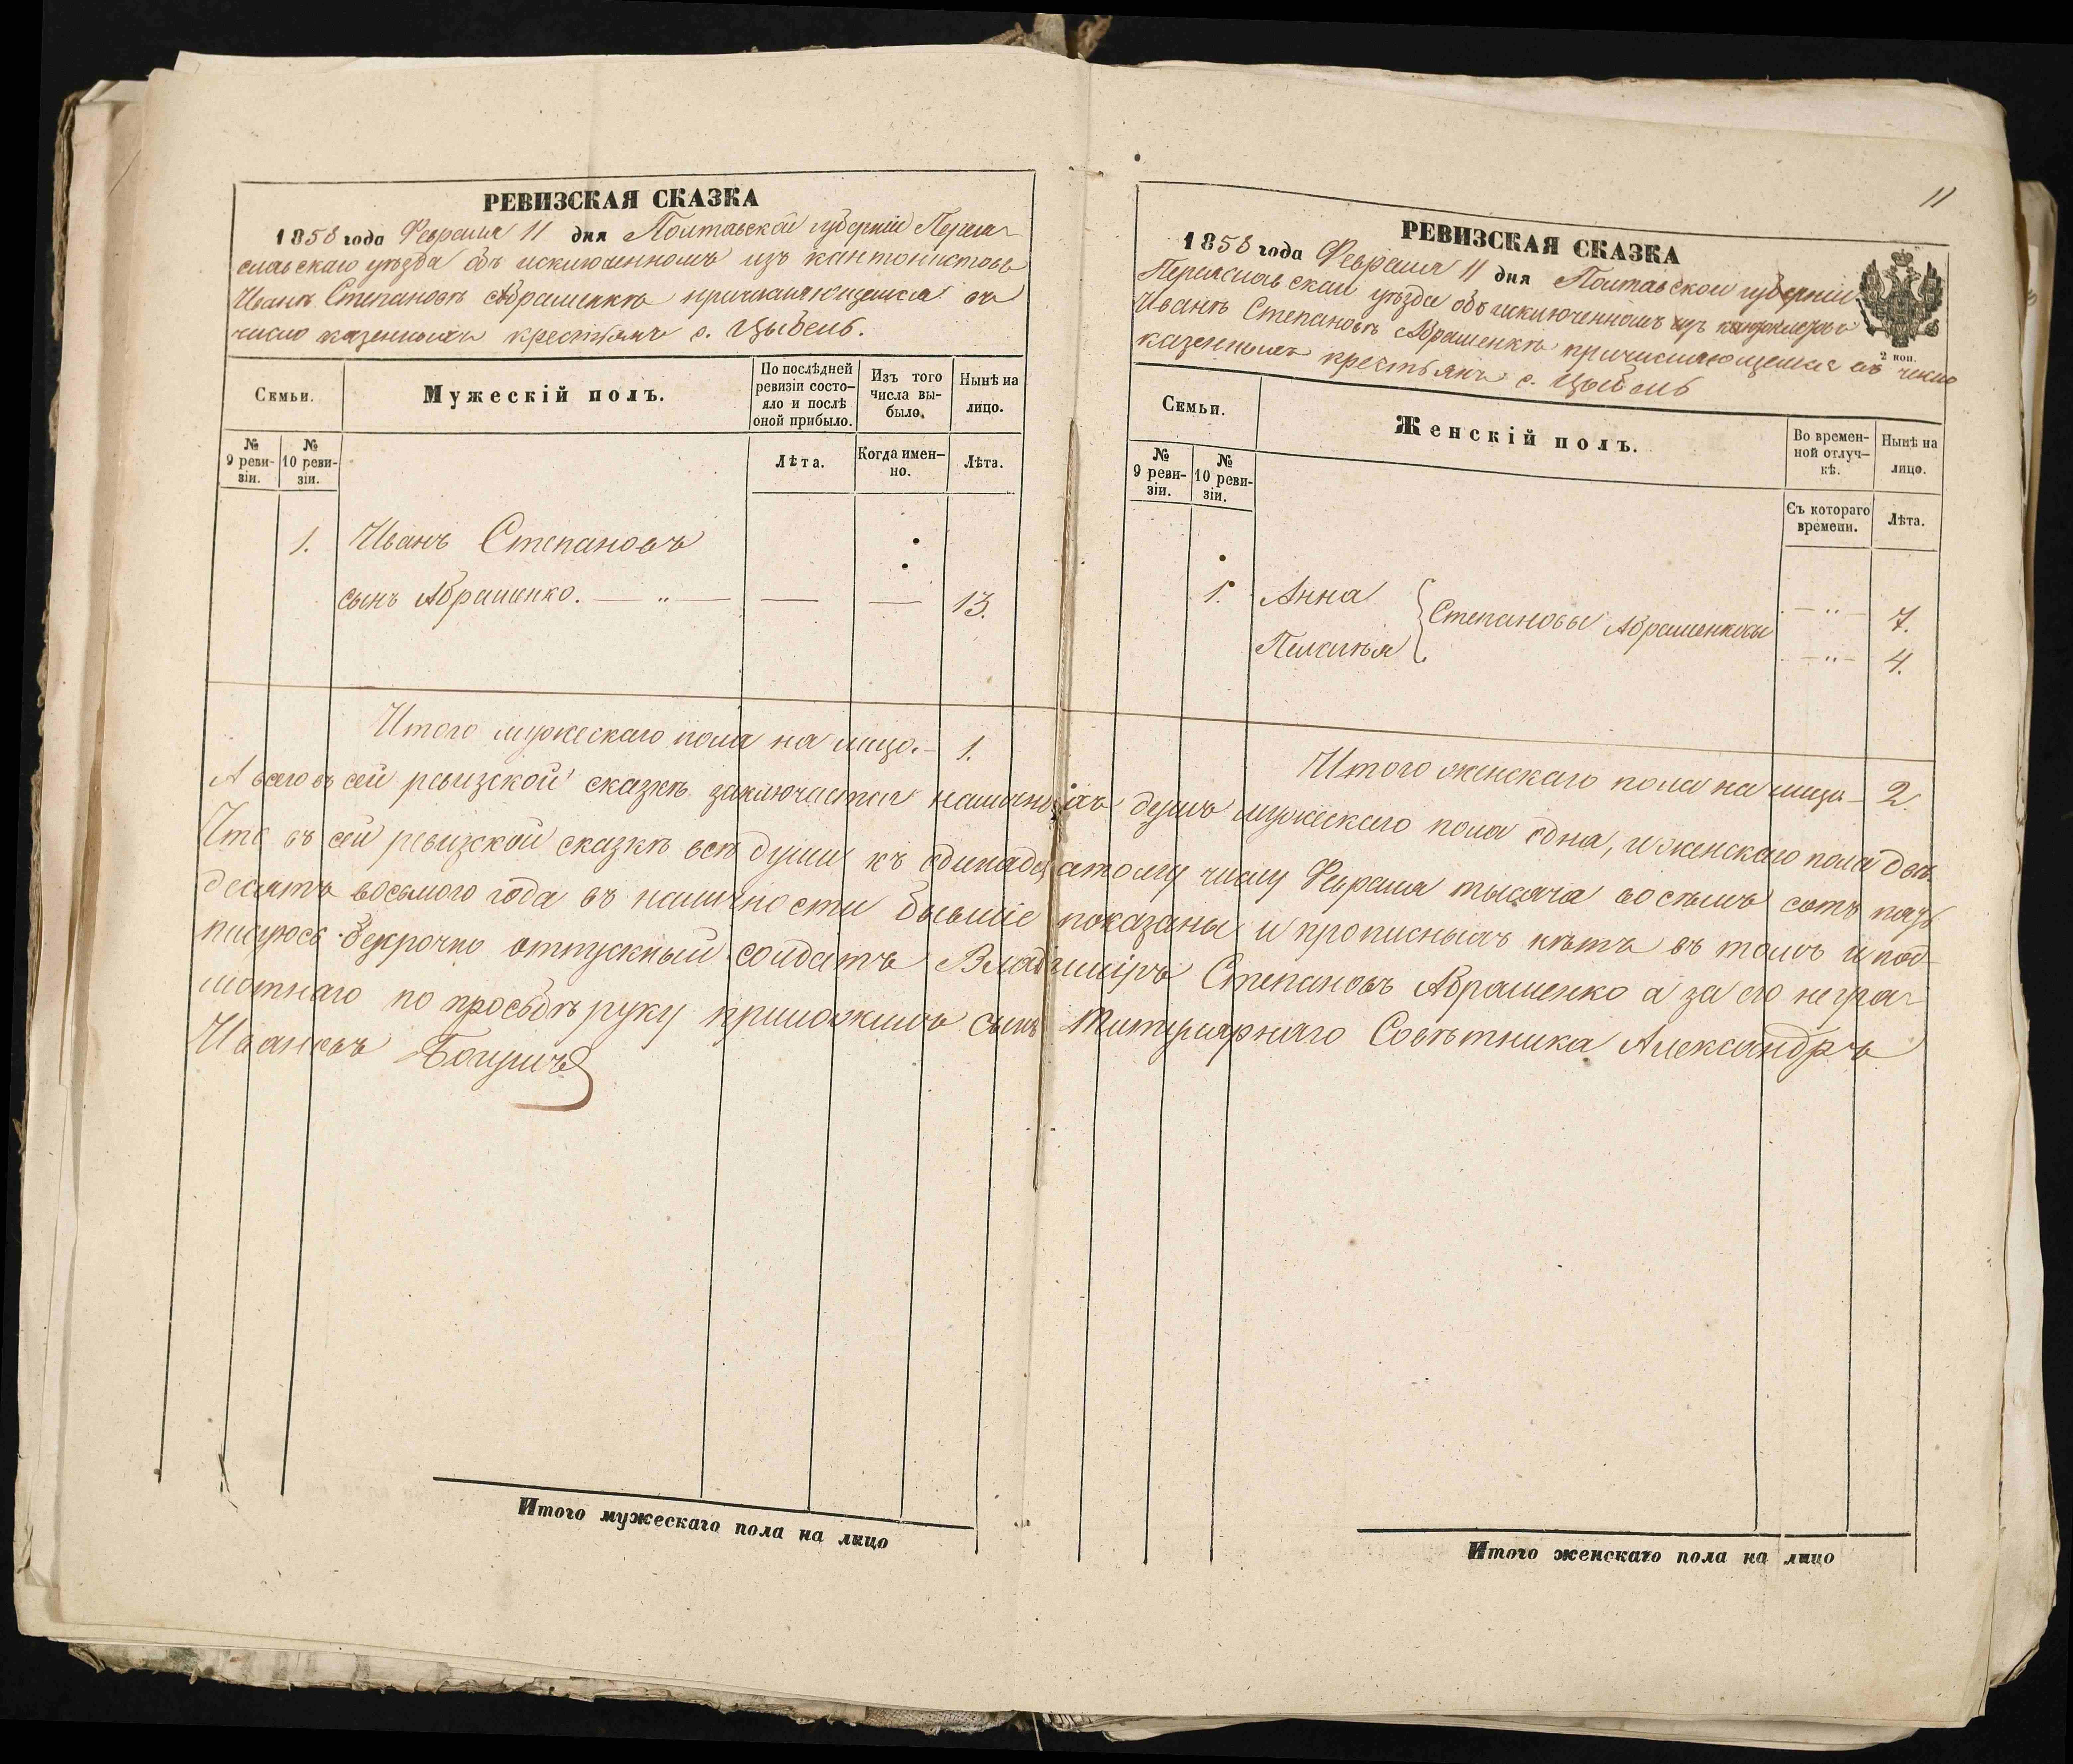 РЕВИЗСКАЯ СКАЗКА
1858 года Февраля 11 дня Полтавской губерніи Перея-
славскаго уѣзда объ исключенномъ изъ кантонистовъ
Иванѣ Степановѣ Абраменкѣ причисляющемся въ
число казенныхъ крестьянъ с. Цыбель.
Семьи.
Мужескій полъ.
По послѣдней ревизіи состо-яло и послѣ оной прибыло.
Изъ того числа вы-было.
Нынѣ на лицо.
№ 9 реви-зіи.
№ 10 реви-зіи.
Лѣта.
Когда имен-но.
Лѣта.
1. Иванъ Степановъ
сынъ Абраменко. — „ — — — 13.
Итого мужескаго пола на лицо. – 1.
11
РЕВИЗСКАЯ СКАЗКА
1858 года Февраля 11 дня Полтавской губерніи
Переяславскаго уѣзда объ исключенномъ изъ кантонистовъ
Иванѣ Степановѣ Абраменкѣ причисляющемся въ число
казенныхъ крестьянъ с. Цыбель
2 коп.
Семьи.
Женскій полъ.
Во времен-ной отлуч-кѣ.
Нынѣ на лицо.
№ 9 реви-зіи.
№ 10 реви-зіи.
Съ котораго времени.
Лѣта.
1. Анна } Степановы Абраменковы — „ — 7.
Пелагія — „ — 4.
Итого женскаго пола на лицо – 2
А всего въ сей ревизской сказкѣ заключается наличныхъ душъ мужескаго пола одна, и женскаго пола двѣ.
Что въ сей ревизской сказкѣ всѣ души къ одинадцатому числу Февраля тысяча восѣмъ сотъ пять
десятъ восьмого года въ наличности бывшіе показаны и прописныхъ нѣтъ въ томъ и под-
писуюсь безсрочно отпускный солдатъ Владиміръ Степановъ Абраменко а за его негра-
мотнаго по просьбѣ руку приложилъ сынъ Титулярнаго Совѣтника Александръ
Ивановъ
Итого мужескаго пола на лицо
Итого женскаго пола на лицо